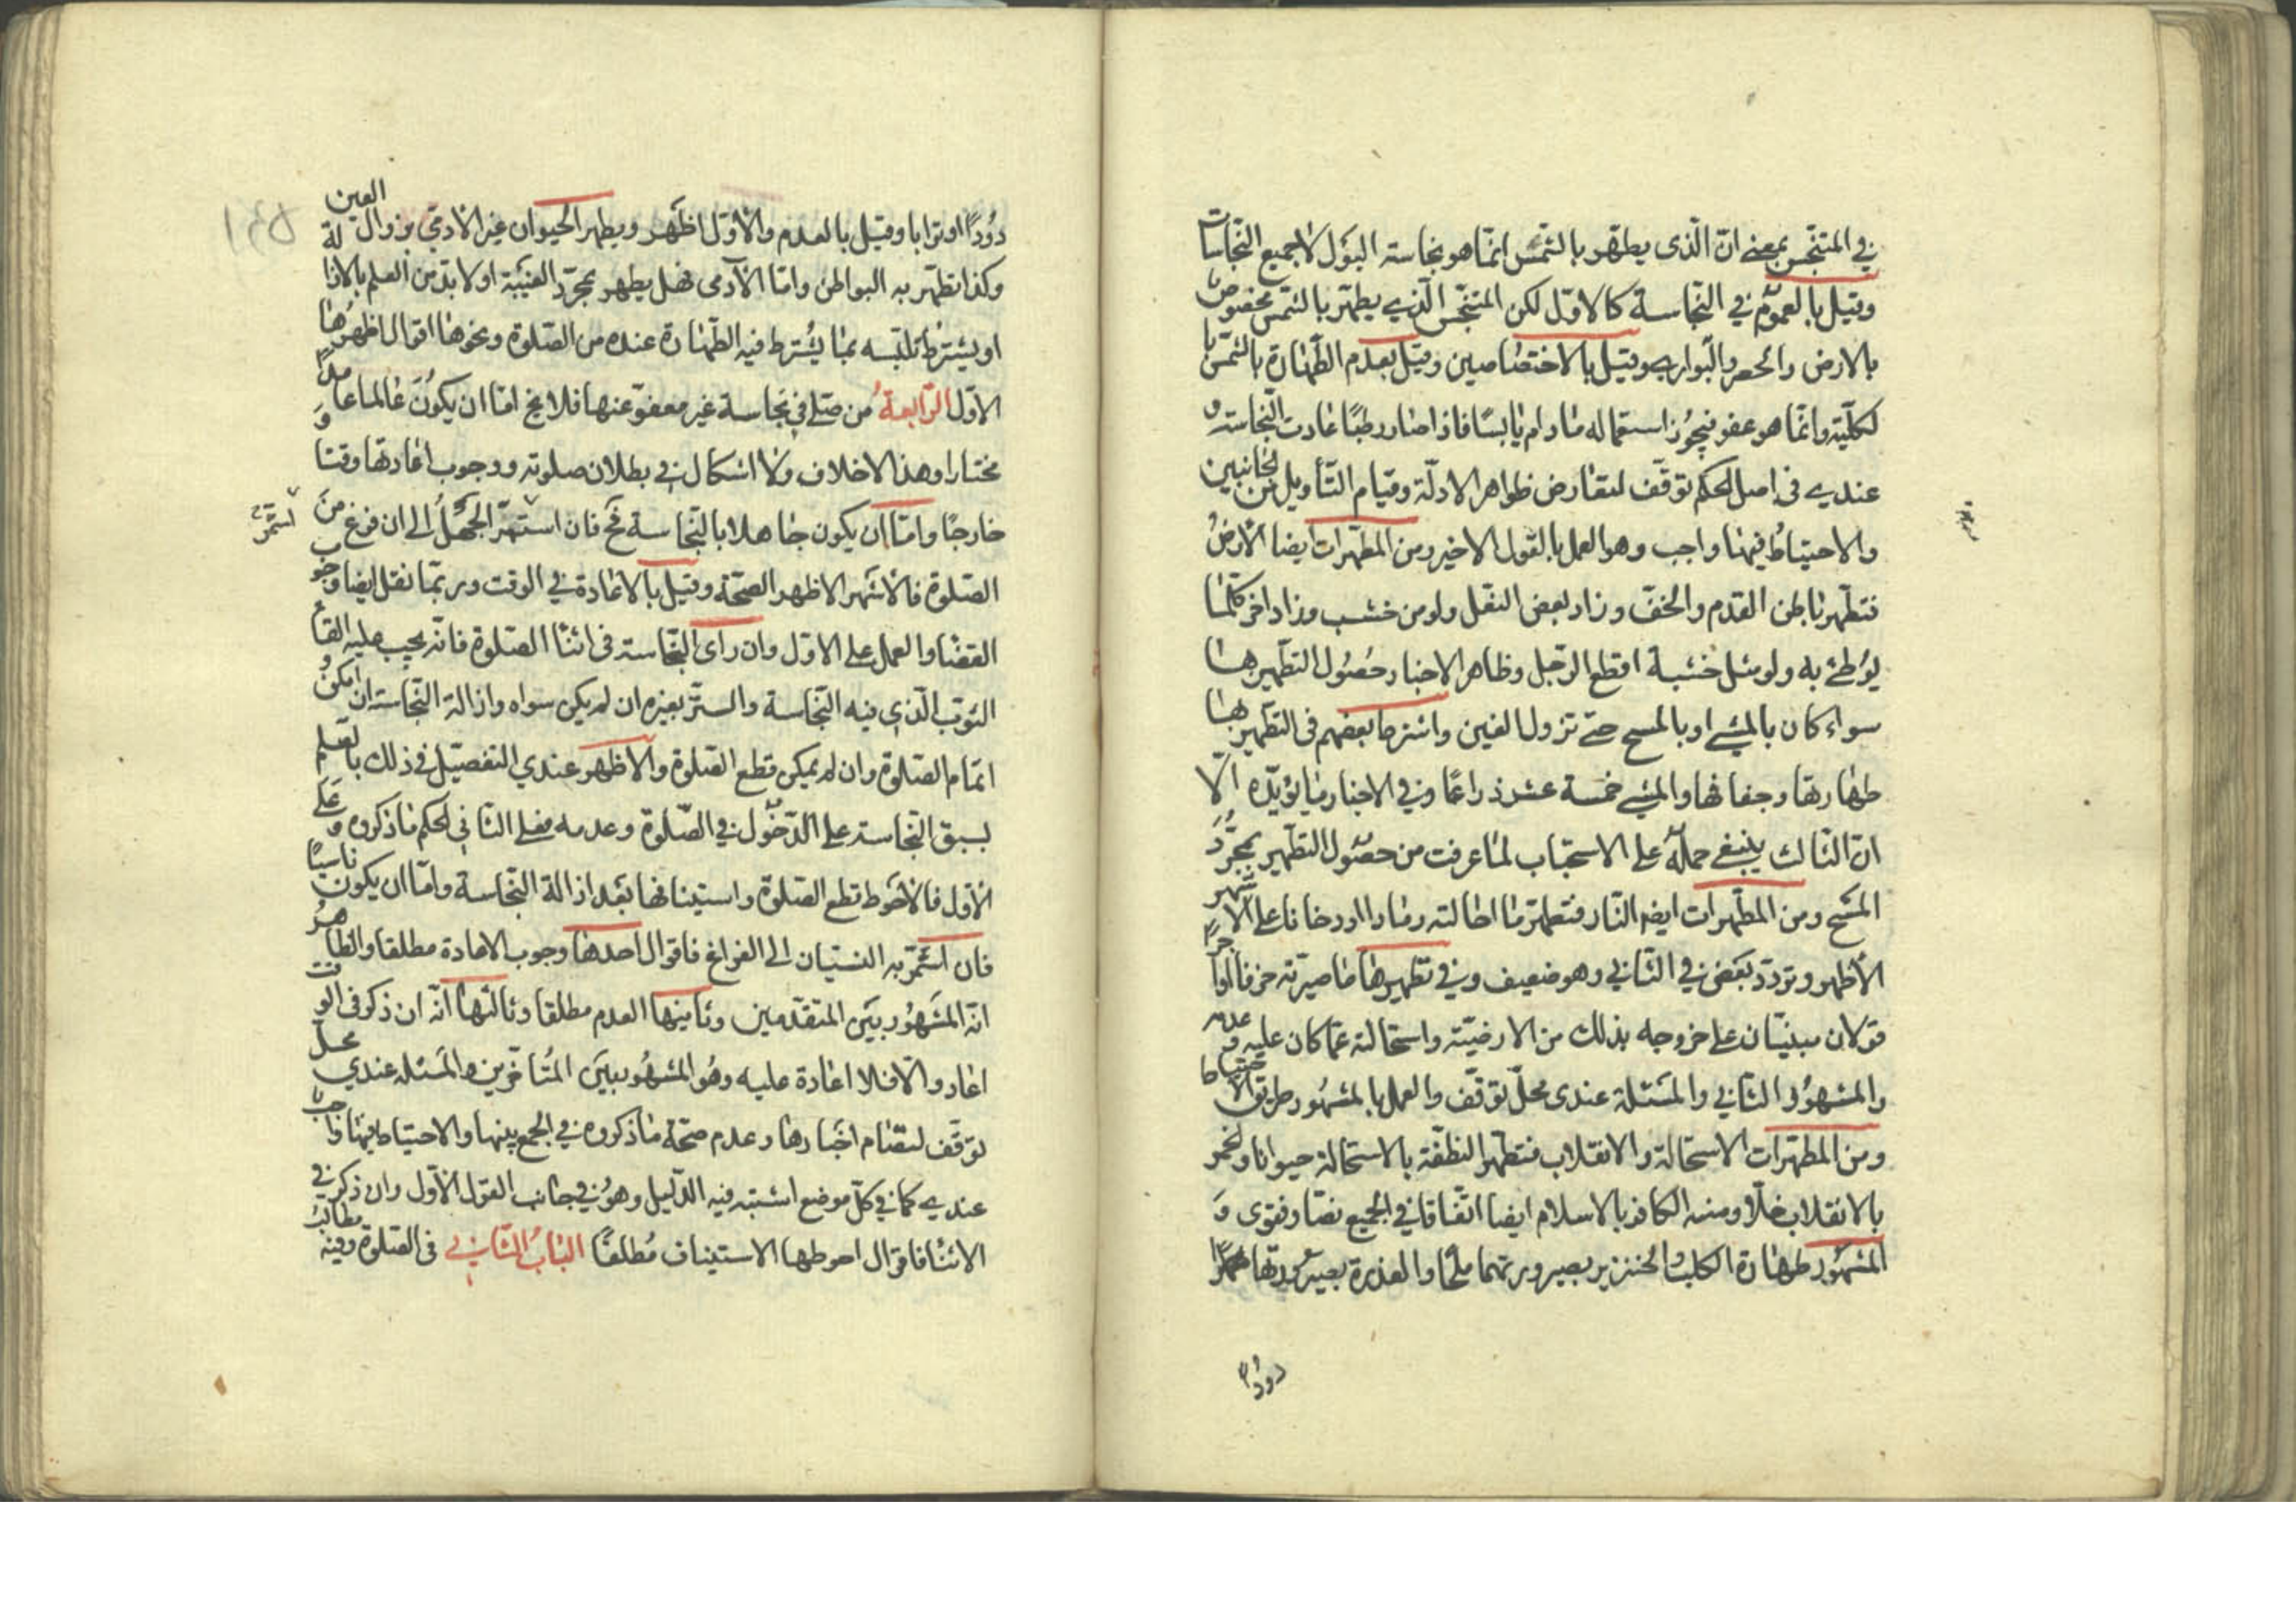 في المتنجس بمعنى ان الذي يطهر بالشمس انما هو نجاسة البول لا جميع النجاسات
وقيل بالعموم في النجاسة كالاول لكن المتنجس الذي يطهر بالشمس مخصوص
بالارض والحصر والبواري وقيل بالاختصاصين وقيل بعدم الطهارة بالشمس با
لكلية وانما هو عفو فيجوز استعماله ما دام يابسا فاذا صار رطبا عادت النجاسة و
عندي في اصل الحكم توقف لتعارض ظواهر الادلة وقيام التأويل من الجانبين
والاحتياط فيها واجب وهو العمل بالقول الاخير ومن المطهرات ايضا الارض
فتطهر باطن القدم والخف وزاد بعض النعل ولو من خشب وزاد اخر كلما
يوطئ به ولو مثل خشبة اقطع الرجل وظاهر الاخبار حصول التطهير بها
سواء كان بالمشي او بالمسح حتى تزول العين واشترط بعضهم في التطهير بها
طهارتها وجفافها والمشي خمسة عشر ذراعا وفي الاخبار ما يؤيده الا
ان الثالث ينبغي حمله على الاستحباب لما عرفت من حصول التطهير بمجرد
المسح ومن المطهرات ايضا النار فتطهر ما احالته رمادا او دخانا على الاشهر
الاظهر وتردد بعض في الثاني وهو ضعيف وفي تطهيرها ما صيرته خزفا او اجرا
قولان مبنيان على خروجه بذلك من الارضية واستحالته عما كان عليه وعدمه
والمشهور الثاني والمسئلة عندي محل توقف والعمل بالمشهور طريق الاحتياط
ومن المطهرات الاستحالة والانقلاب فتطهر النطفة بالاستحالة حيوانا والخمر
بالانقلاب خلا ومنه الكافر بالاسلام ايضا اتفاقا في الجميع نصا وفتوى و
المشهور طهارة الكلب والخنزير بصيرورتهما ملحا والعذرة بصيرورتها
دودا
دودا او ترابا وقيل بالعدم والاول اظهر ويطهر الحيوان غير الادمي بزوال العين
وكذا تطهر به البواطن واما الآدمي فهل يطهر بمجرد الغيبة او لا بد من العلم بالازالة
او يشترط تلبسه بما يشترط فيه الطهارة عنده من الصلوة ونحوها اقوال اظهرها
الاول الرابعة من صلى في نجاسة غير معفو عنها فلا يخ اما ان يكون عالما عامدا
مختارا وهذا لا خلاف ولا اشكال في بطلان صلوته ووجوب اعادتها وقتا و
خارجا واما ان يكون جاهلا بالنجاسة فح فان استمر الجهل الى ان فرغ من
استمر
الصلوة فالاشهر الاظهر الصحة وقيل بالاعادة في الوقت وربما نقل ايضا وجوب
القضا والعمل على الاول وان رأى النجاسة في اثنا الصلوة فانه يجب عليه القاء
الثوب الذي فيه النجاسة والستر بغيره ان لم يكن سواه وازالة النجاسة ان امكن و
اتمام الصلوة وان لم يمكن قطع الصلوة والاظهر عندي التفصيل في ذلك بالعلم
بسبق النجاسة على الدخول في الصلوة وعدمه فعلى الثاني الحكم ما ذكروه وعلى
الاول فالاحوط قطع الصلوة واستينافها بعد ازالة النجاسة واما ان يكون ناسيا
فان استمر به النسيان الى الفراغ فاقوال احدها وجوب الاعادة مطلقا والظاهر
انه المشهور بين المتقدمين وثانيها العدم مطلقا وثالثها انه ان ذكر في الوقت
اعاد والا فلا اعادة عليه وهو المشهور بين المتأخرين والمسئلة عندي محل
توقف لتصادم اخبارها وعدم صحة ما ذكروه في الجمع بينها والاحتياط فيها واجب
عندي كما في كل موضع اشتبه فيه الدليل وهو في جانب القول الاول وان ذكر في
الاثنا فاقوال احوطها الاستيناف مطلقا الباب الثاني في الصلوة وفيه مطالب